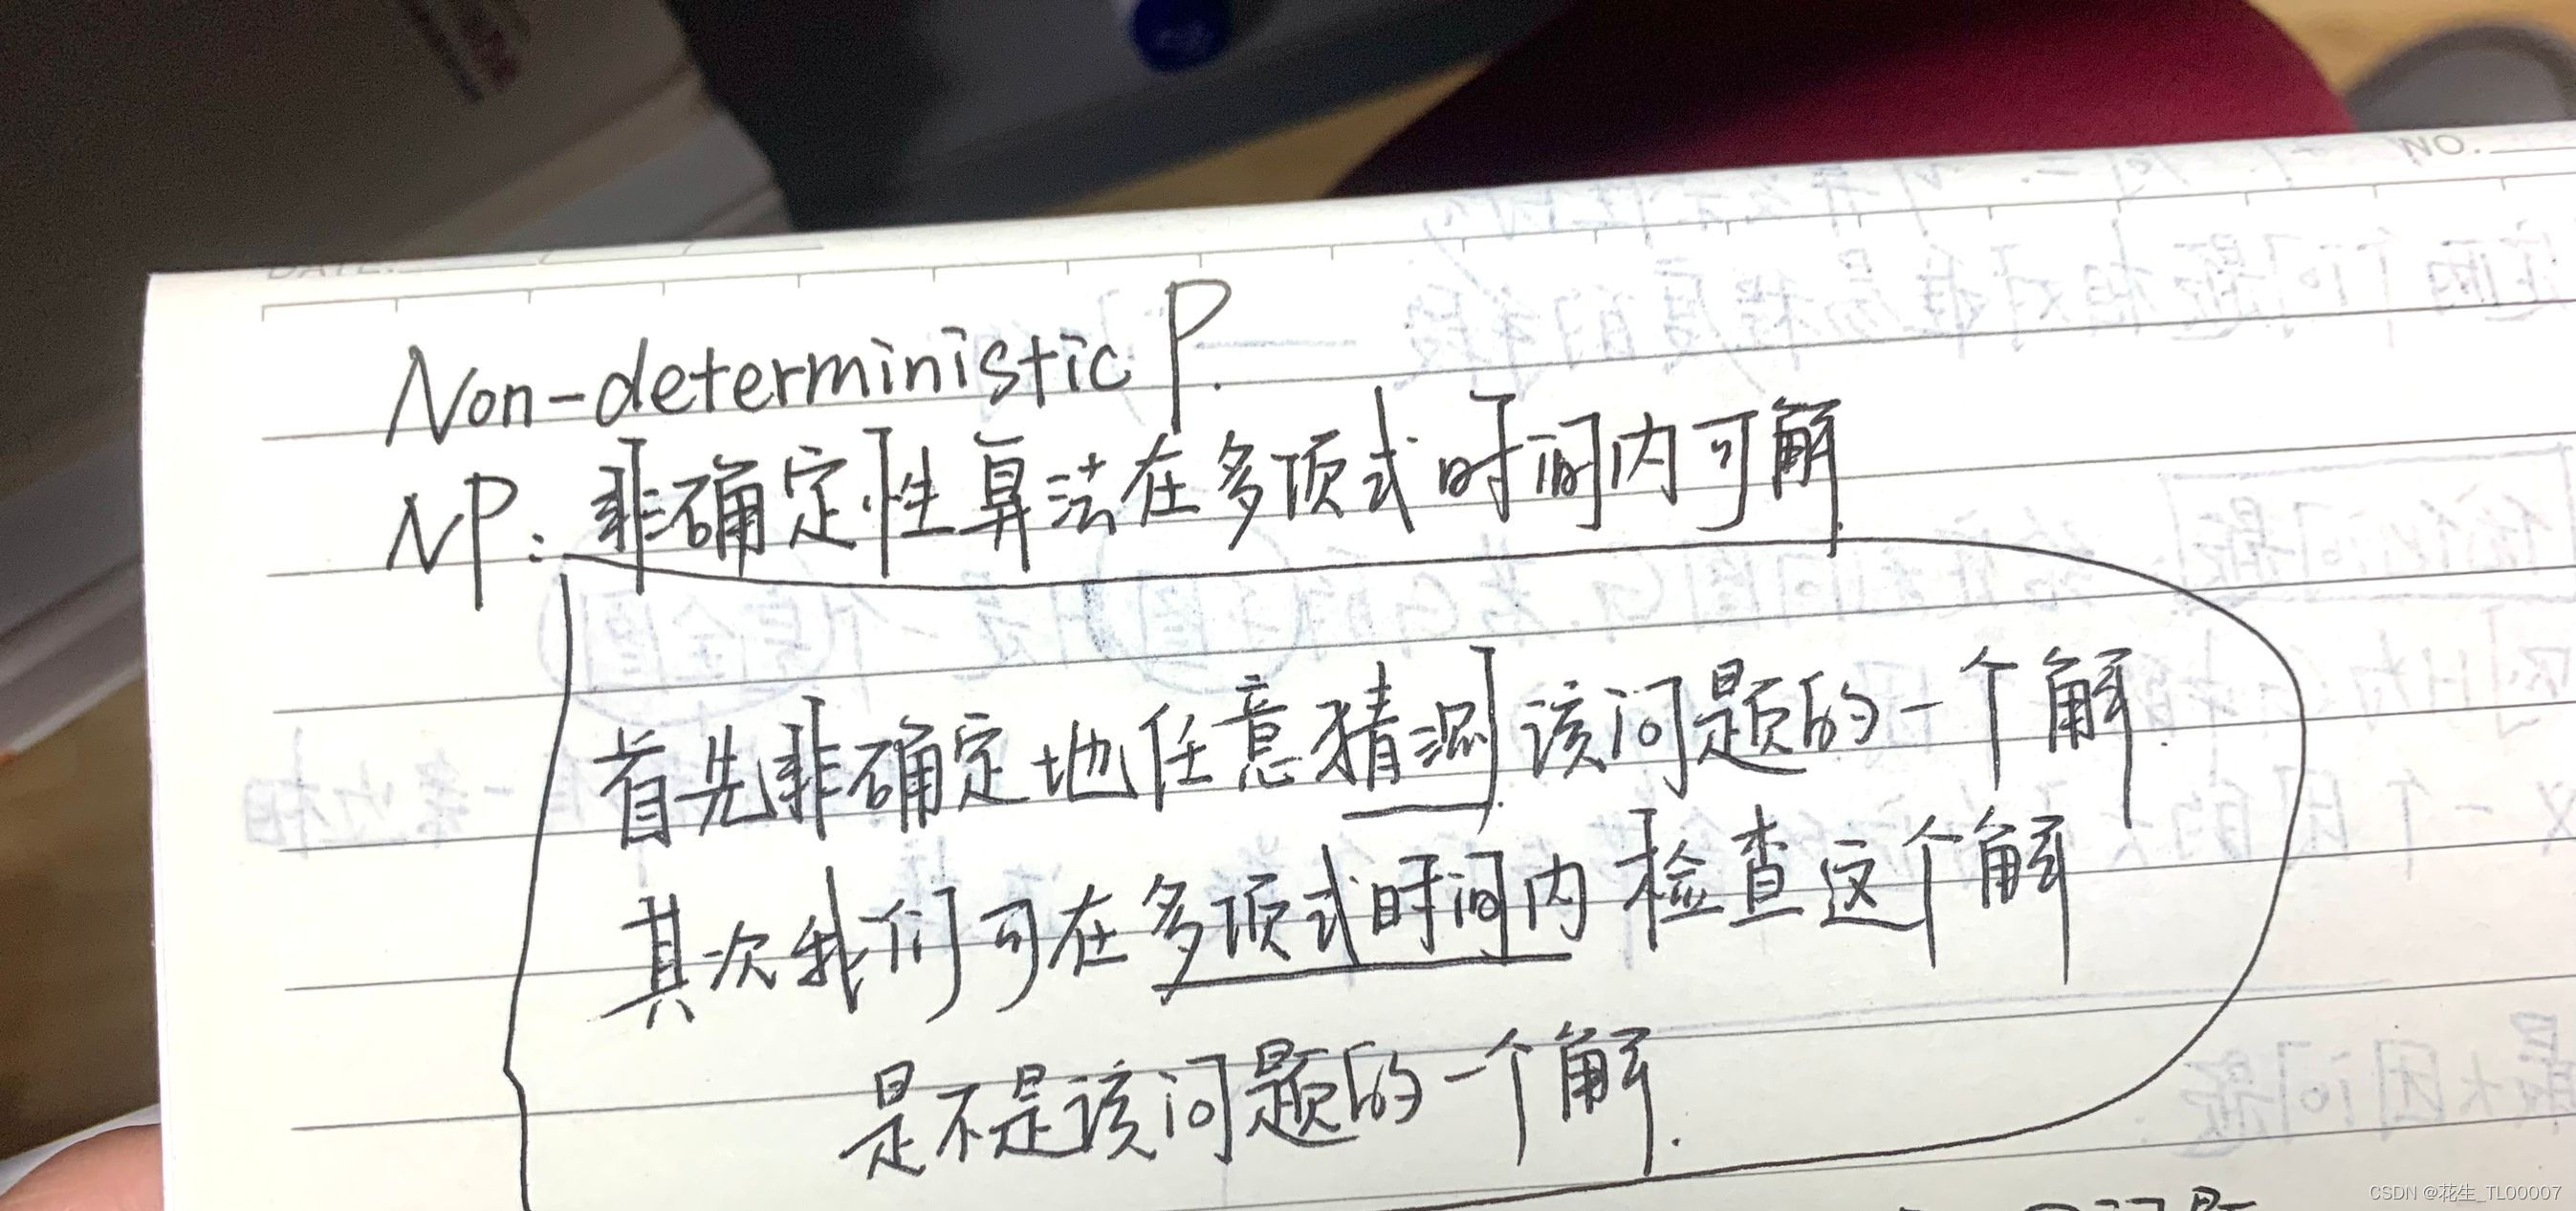 NO.
DATE.
Non-deterministic P.
NP:非确定性算法在多项式时间内可解.
首先非确定地任意猜测该问题的一个解.
其次我们可在多项式时间内检查这个解
是不是该问题的一个解.
CSDN @花生_TL00007